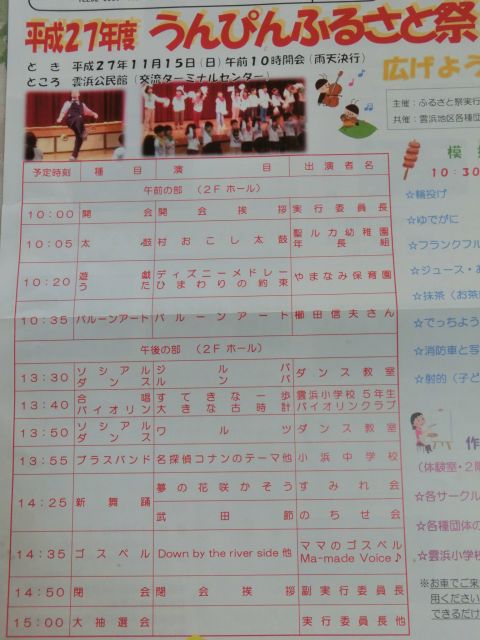 平成27年度 うんぴんふるさと祭
とき 平成27年11月15日(日)午前10時開会(雨天決行)
ところ 雲浜公民館(交流ターミナルセンター)
広げよう
主催：ふるさと祭実行
共催：雲浜地区各種団
予定時刻 種目 演目 出演者名
午前の部 (2F ホール)
10:00 開会 開会挨拶 実行委員長
10:05 太鼓 村おこし太鼓 聖ルカ幼稚園
年長組
10:20 遊戯 ディズニーメドレー やまなみ保育園
うた ひまわりの約束
10:35 バルーンアート バルーンアート 櫛田信夫さん
午後の部 (2F ホール)
13:30 ソシアル ジルバ ダンス教室
ダンス ルンバ
13:40 合唱 すてきな一歩 雲浜小学校5年生
バイオリン 大きな古時計 バイオリンクラブ
13:50 ソシアル ワルツ ダンス教室
ダンス
13:55 ブラスバンド 名探偵コナンのテーマ他 小浜中学校
14:25 新舞踊 夢の花咲かそう すみれ会
武田節 のちせ会
14:35 ゴスペル Down by the river side 他 ママのゴスペル
Ma-made Voice♪
14:50 閉会 閉会挨拶 副実行委員長
15:00 大抽選会 実行委員長他
模
10:30
☆輪投げ
☆ゆでがに
☆フランクフル
☆ジュース・お
☆抹茶(お茶
☆でっちよう
☆消防車と写
☆射的(子ど
作
(体験室・2階
☆各サークル
☆各種団体の
☆雲浜小学校
※お車でご来
用ください
できるだけ